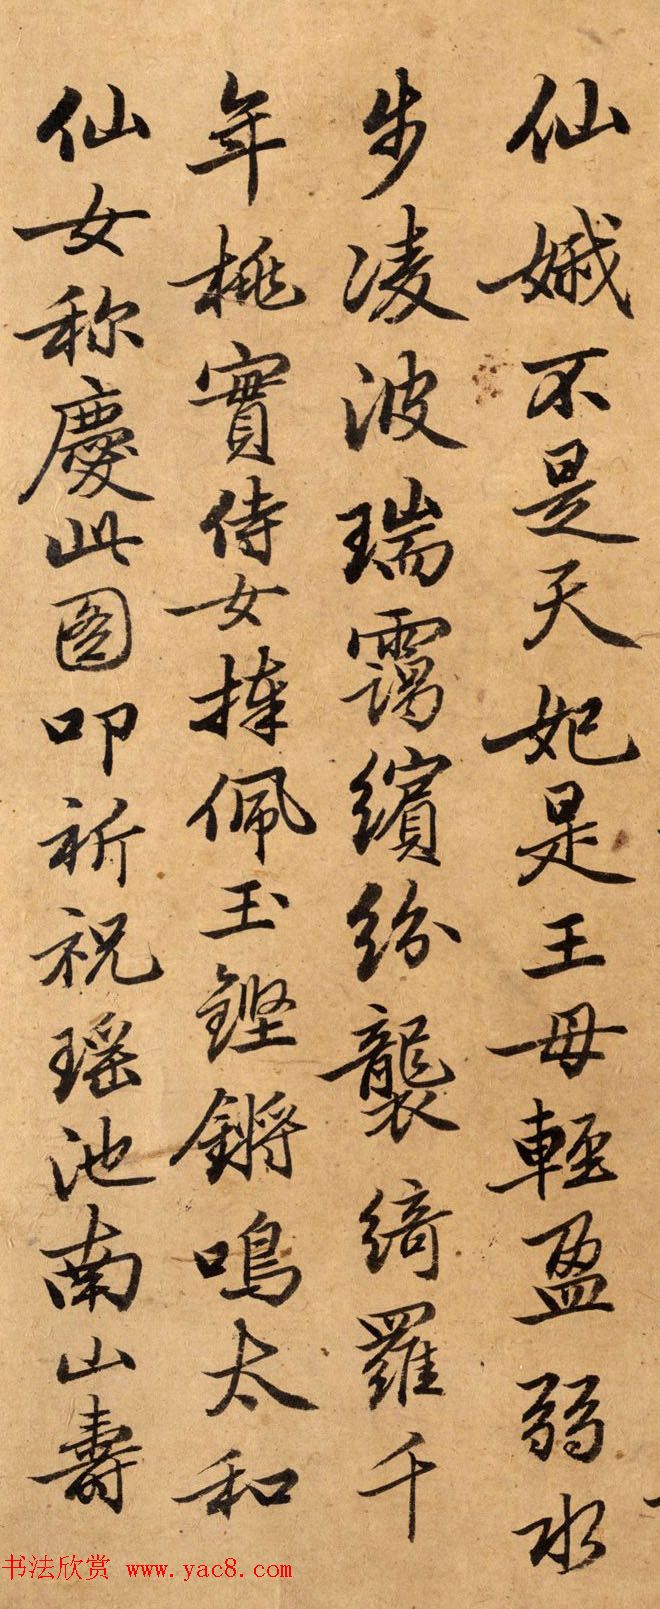 仙娥不是天妃是王母輕盈弱水
步凌波瑞靄繽紛襲綺羅千
年桃實侍女捧佩玉鏗鏘鳴太和
仙女称慶此图叩祈祝瑶池南山壽
书法欣赏 www.yac8.com